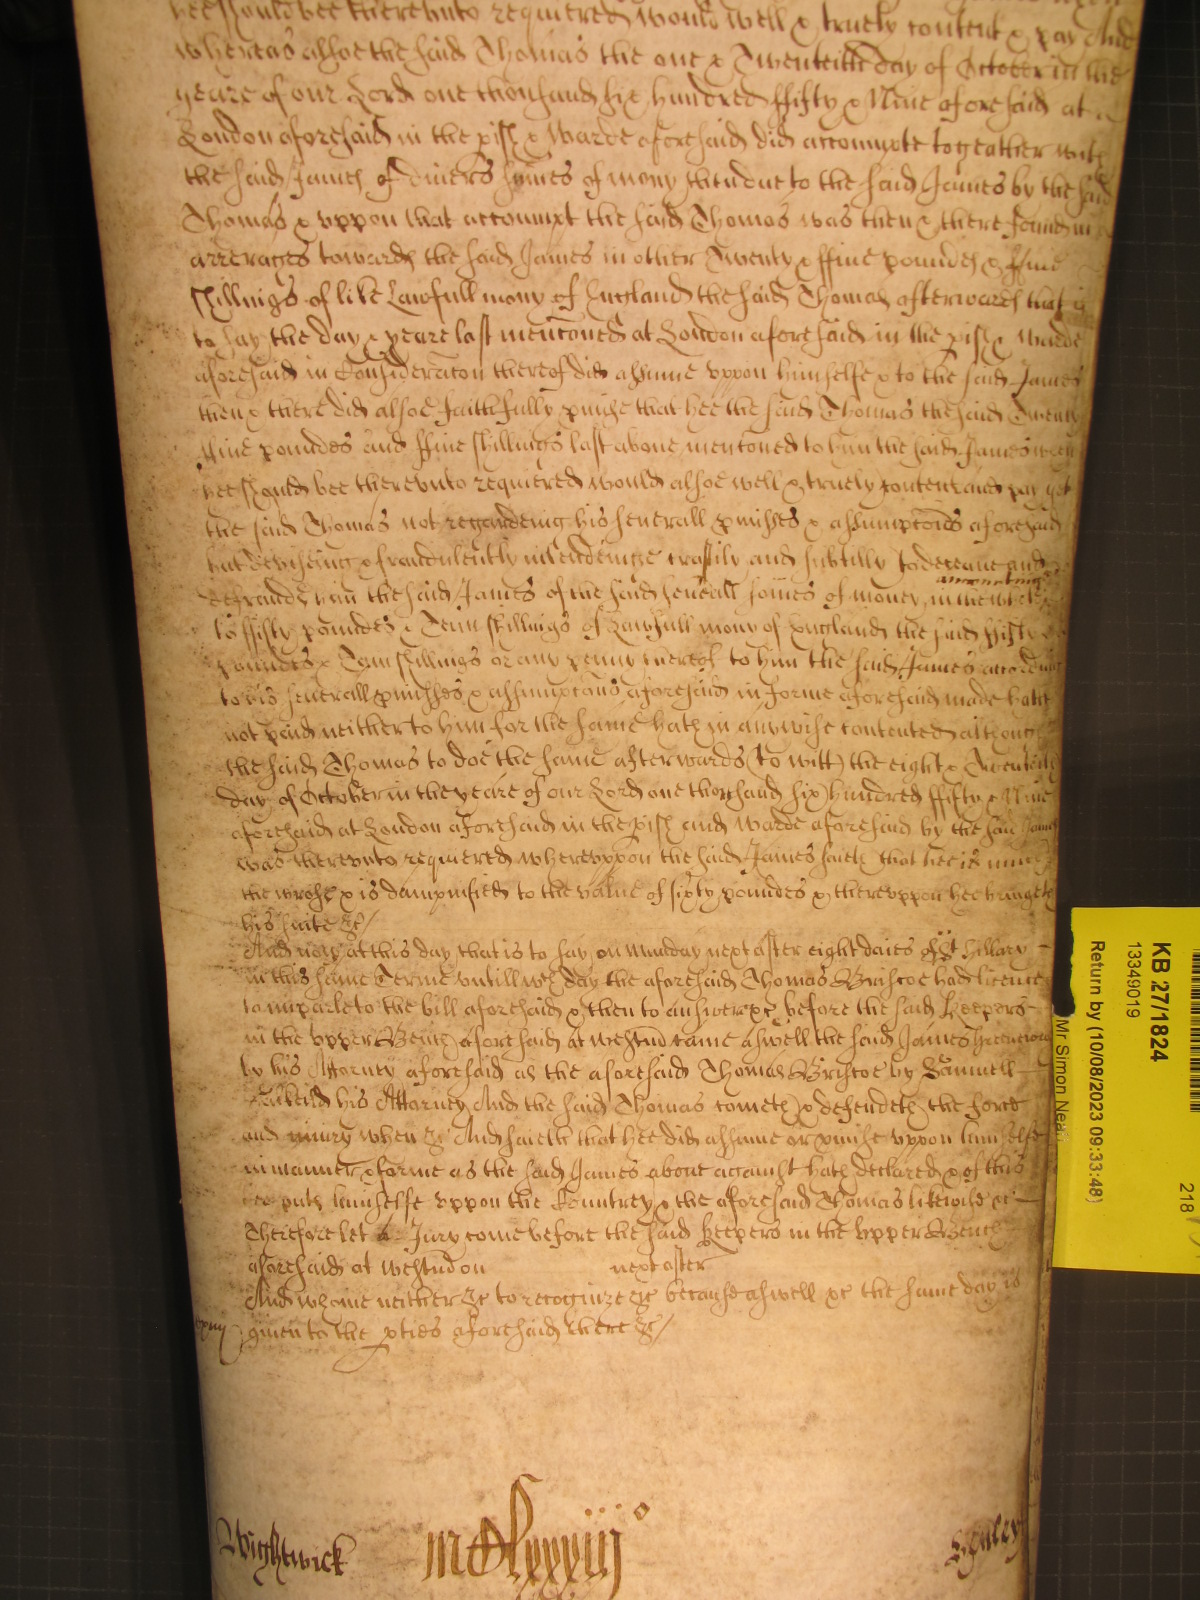 hee should bee therevnto requiered would well & truely content & pay And
whereas alsoe the said Thomas the one & Twentieth day of October in the
yeare of our Lord one thousand six hundred ffifty & Nine aforesaid at
London aforesaid in the pish & Warde aforesaid did accompte togeather with
the said James of divers sumes of mony then due to the said James by the said
Thomas & vppon that accompt the said Thomas was then & there found in
arrerages towards the said James in other Twenty & ffive poundes & ffive
shillings of like Lawfull mony of England the said Thomas afterwards that is
to say the day & yeare last menconed at London aforesaid in the pish & Warde
aforesaid in Consideracon thereof did assume vppon himselfe & to the said James
then & there did alsoe faithfully pmise that hee the said Thomas the said Twenty
ffive poundes and ffive shillings last above menconed to him the said James when
hee should bee therevnto requiered would alsoe well & truely content and pay yet
the said Thomas not regardeing his severall pmisses & assumpcons aforesaid
but deviseing & fraudulently intendeinge craftily and subtilly to deceave and
defraude him the said James of the said severall somes of money amounting in the whole
to ffifty poundes & Tenn shillings of Lawfull mony of England the said ffifty
poundes & Tenn shillings or any penny thereof to him the said James according
to his severall pmisses & assumpcons aforesaid in forme aforesaid made hath
not paid neither to him for the same hath in anywise contented although
the said Thomas to doe the same afterwards (to witt) the eight & Twentieth
day of October in the yeare of our Lord one thousand six hundred ffifty & Nine
aforesaid at London aforesaid in the pish and Warde aforesaid by the said James
was therevnto requiered wherevppon the said James saith that hee is
the worse & is dampnified to the value of sixty poundes & therevppon hee bringeth
his suite &c/
And now at this day that is to say on Munday next after eight daies of St Hillary
in this same Terme vntill wch day the aforesaid Thomas Briscoe had licence
to imparle to the bill aforesaid & then to answere &c before the said Keepers
in the vpper Bench aforesaid at Westmr came aswell the said James
by his Attorney aforesaid as the aforesaid Thomas Briscoe by Samuell
his Attorney And the said Thomas cometh & defendeth the force
and iniury when &c And saieth that hee did assume or pmise vppon himselfe
in manner & forme as the said James above against hath declared & of this
hee puts himselfe vppon the Countrey & the aforesaid Thomas likewise &c
Therefore let a Jury come before the said Keepers in the Vpper Bench
aforesaid at Westmr on next after
And whoe neither &c to recognize &c because aswell &c the same day is
given to the pties aforesaid there &c/
Wightwick
mDlxxxiijo
KB 27/1824
13349019
Return by (10/08/2023 09:33:48)
Mr Simon Neal
218